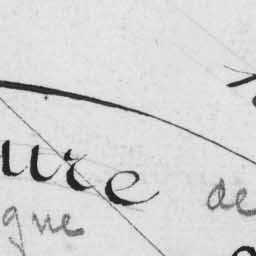 ure de
gne